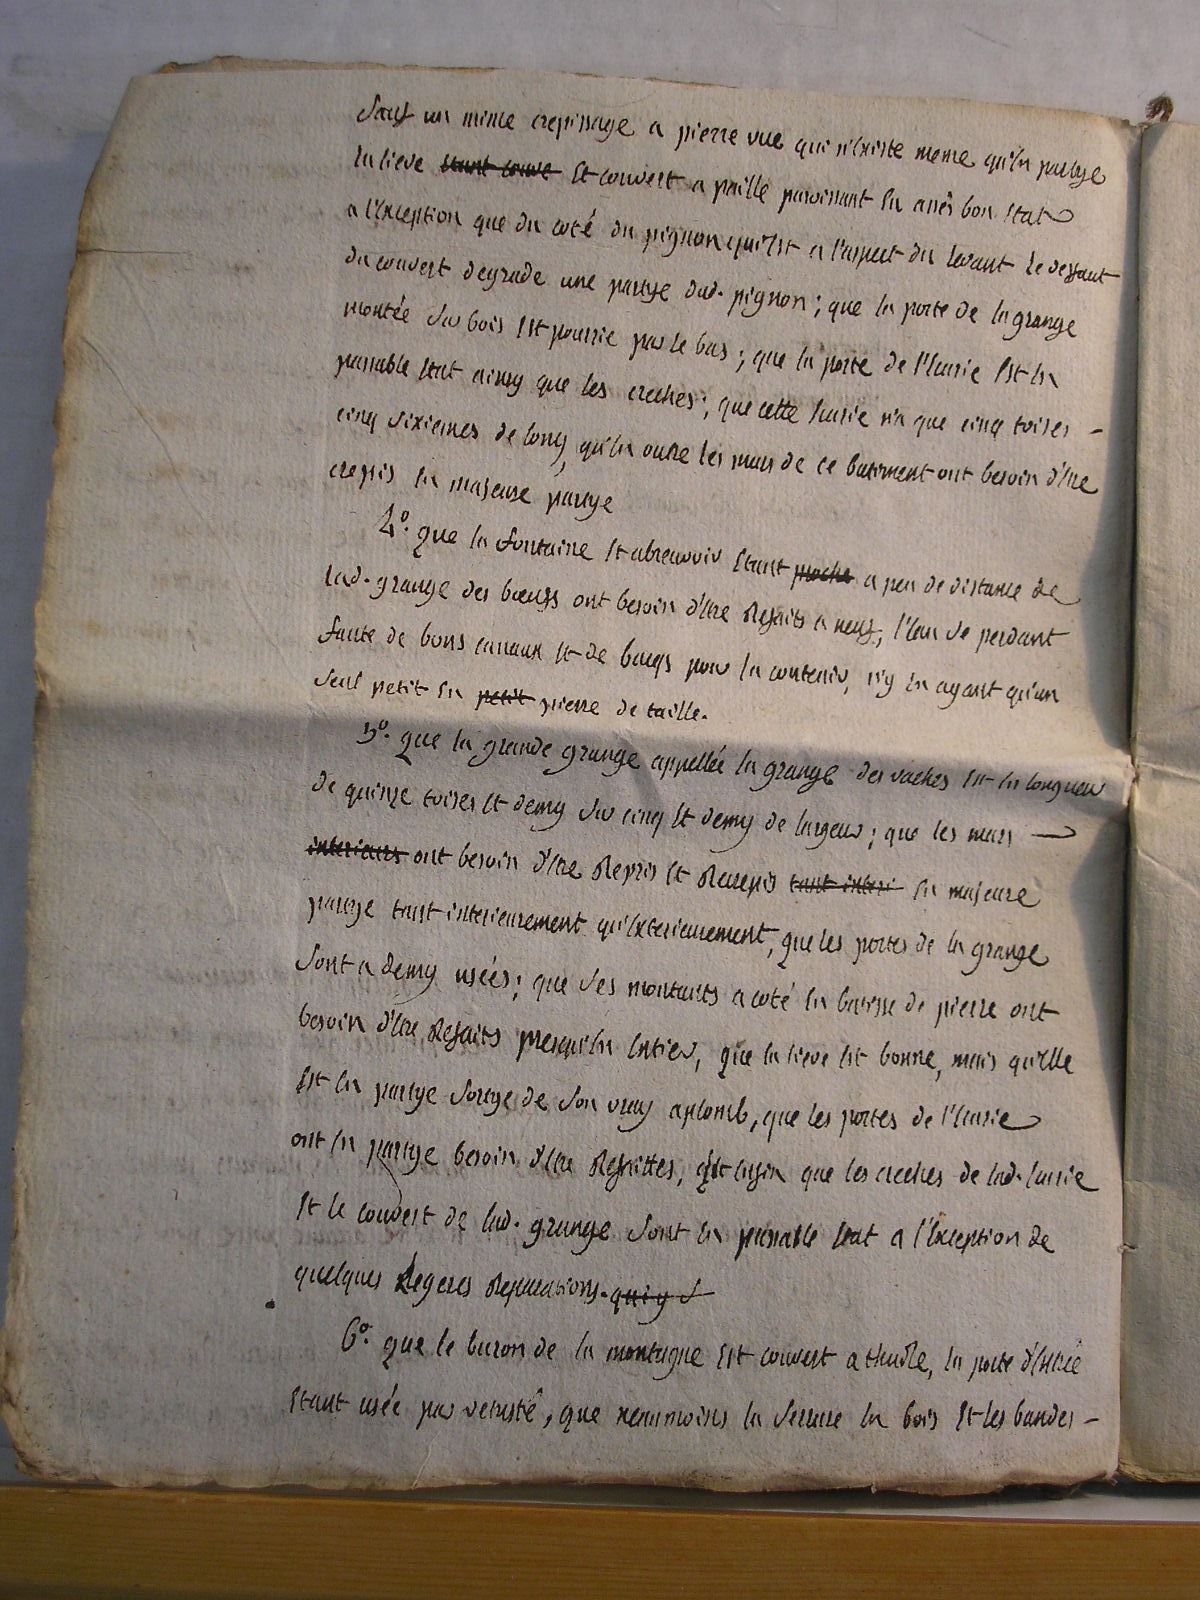 Sauf un mince crepissage a pierre vue qui n'existe meme qu'en partye
la lieve étant couve et couvert a paille paroissant en assés bon état
a l'exception que du coté du pignon qui est a l'aspect du levant le deffaut
du couvert degrade une partye dud. pignon; que la porte de la grange
montée sur bois est pourrie par le bas; que la porte de l'écurie est en
passable état ainsy que les creches; que cette écurie n'a que cinq toises
cinq sixiemes de long, qu'en outre les murs de ce batiment ont besoin d'être
crepis en majeure partye
4°. que la fontaine et abreuvoir étant proche a peu de distance de
lad. grange des bœufs ont besoin d'être refaits a neuf, l'eau se perdant
faute de bons canaux et de bacqs pour la contenir, n'y en ayant qu'un
seul petit en petit pierre de taille.
5°. que la grande grange appellée la grange des vaches est en longueur
de quinze toises et demy sur cinq et demy de largeur; que les murs
interieurs ont besoin d'être repris et recrepis tant interi en majeure
partye tant interieurement qu'exterieurement, que les portes de la grange
sont a demy usées; que ses montants a coté en batisse de pierre ont
besoin d'être refaits presqu'en entier, que la lieve est bonne, mais qu'elle
est en partye sortye de son vray aplomb, que les portes de l'écurie
ont en partye besoin d'être refaittes, et enfin que les creches de lad. écurie
et le couvert de lad. grange sont en passable état a l'exception de
quelques legeres reparations. qui y s
6°. que le buron de la montagne est couvert a thuile, la porte d'entrée
étant usée par vetusté, que neanmoins la serrure en bois et les bandes